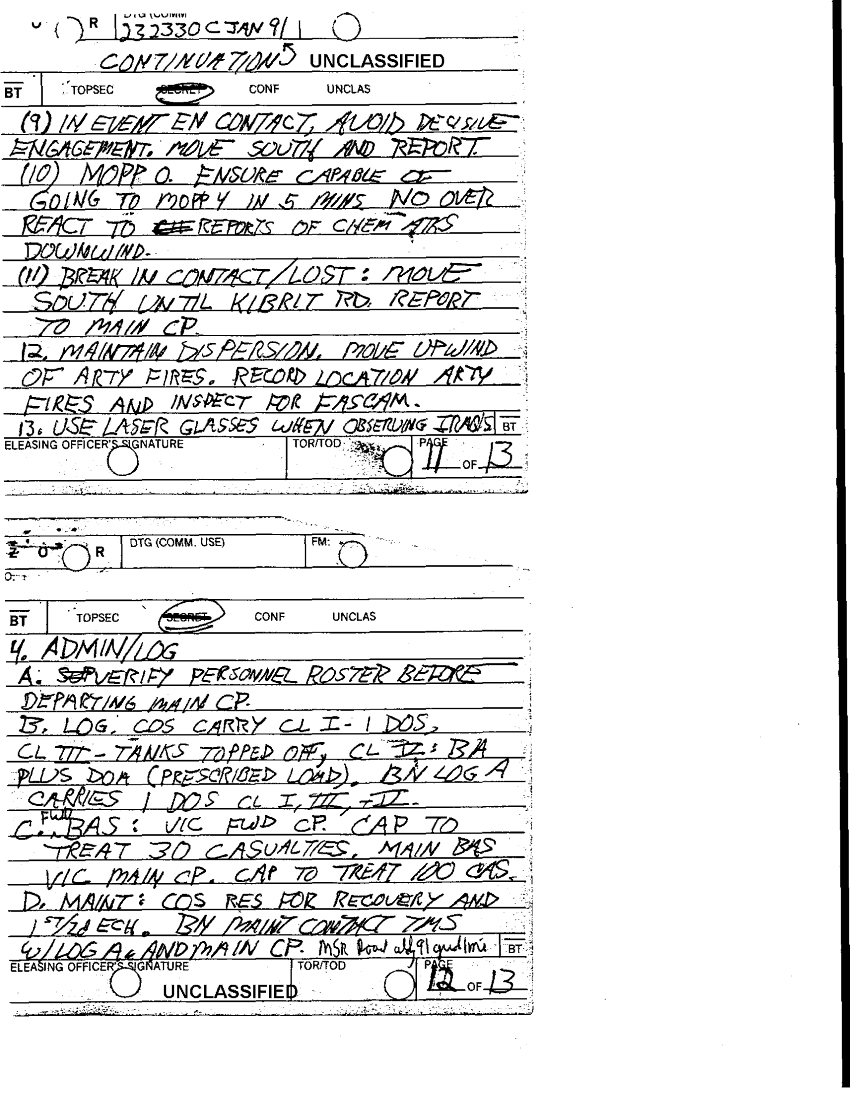 R DTG (COMM
232330C JAN 91
CONTINUATION UNCLASSIFIED
BT TOPSEC SECRET CONF UNCLAS
(9) IN EVENT EN CONTACT, AVOID DECISIVE
ENGAGEMENT. MOVE SOUTH AND REPORT.
(10) MOPP 0. ENSURE CAPABLE OF
GOING TO MOPP 4 IN 5 MINS NO OVER
REACT TO REPORTS OF CHEM ATKS
DOWNWIND.
(11) BREAK IN CONTACT/LOST: MOVE
SOUTH UNTIL KIBRIT RD. REPORT
TO MAIN CP.
12. MAINTAIN DISPERSION. MOVE UPWIND
OF ARTY FIRES. RECORD LOCATION ARTY
FIRES AND INSPECT FOR FASCAM.
13. USE LASER GLASSES WHEN OBSERVING IRAQ'S BT
ELEASING OFFICER'S SIGNATURE TOR/TOD PAGE
11 OF 13
O R DTG (COMM. USE) FM:
BT TOPSEC SECRET CONF UNCLAS
4. ADMIN/LOG
A. VERIFY PERSONNEL ROSTER BEFORE
DEPARTING MAIN CP.
B. LOG. COS CARRY CL I - 1 DOS,
CL III - TANKS TOPPED OFF, CL V: BA
PLUS DOA (PRESCRIBED LOAD). BN LOG A
CARRIES 1 DOS CL I, III, + V.
C. FWD BAS: VIC FWD CP. CAP TO
TREAT 30 CASUALTIES. MAIN BAS
VIC MAIN CP. CAP TO TREAT 100 CAS.
D. MAINT: COS RES FOR RECOVERY AND
1ST/2d ECH. BN MAINT CONTACT TMS
W/LOG A & AND MAIN CP. MSR Road 91 grid line BT
ELEASING OFFICER'S SIGNATURE TOR/TOD PAGE
UNCLASSIFIED 12 OF 13